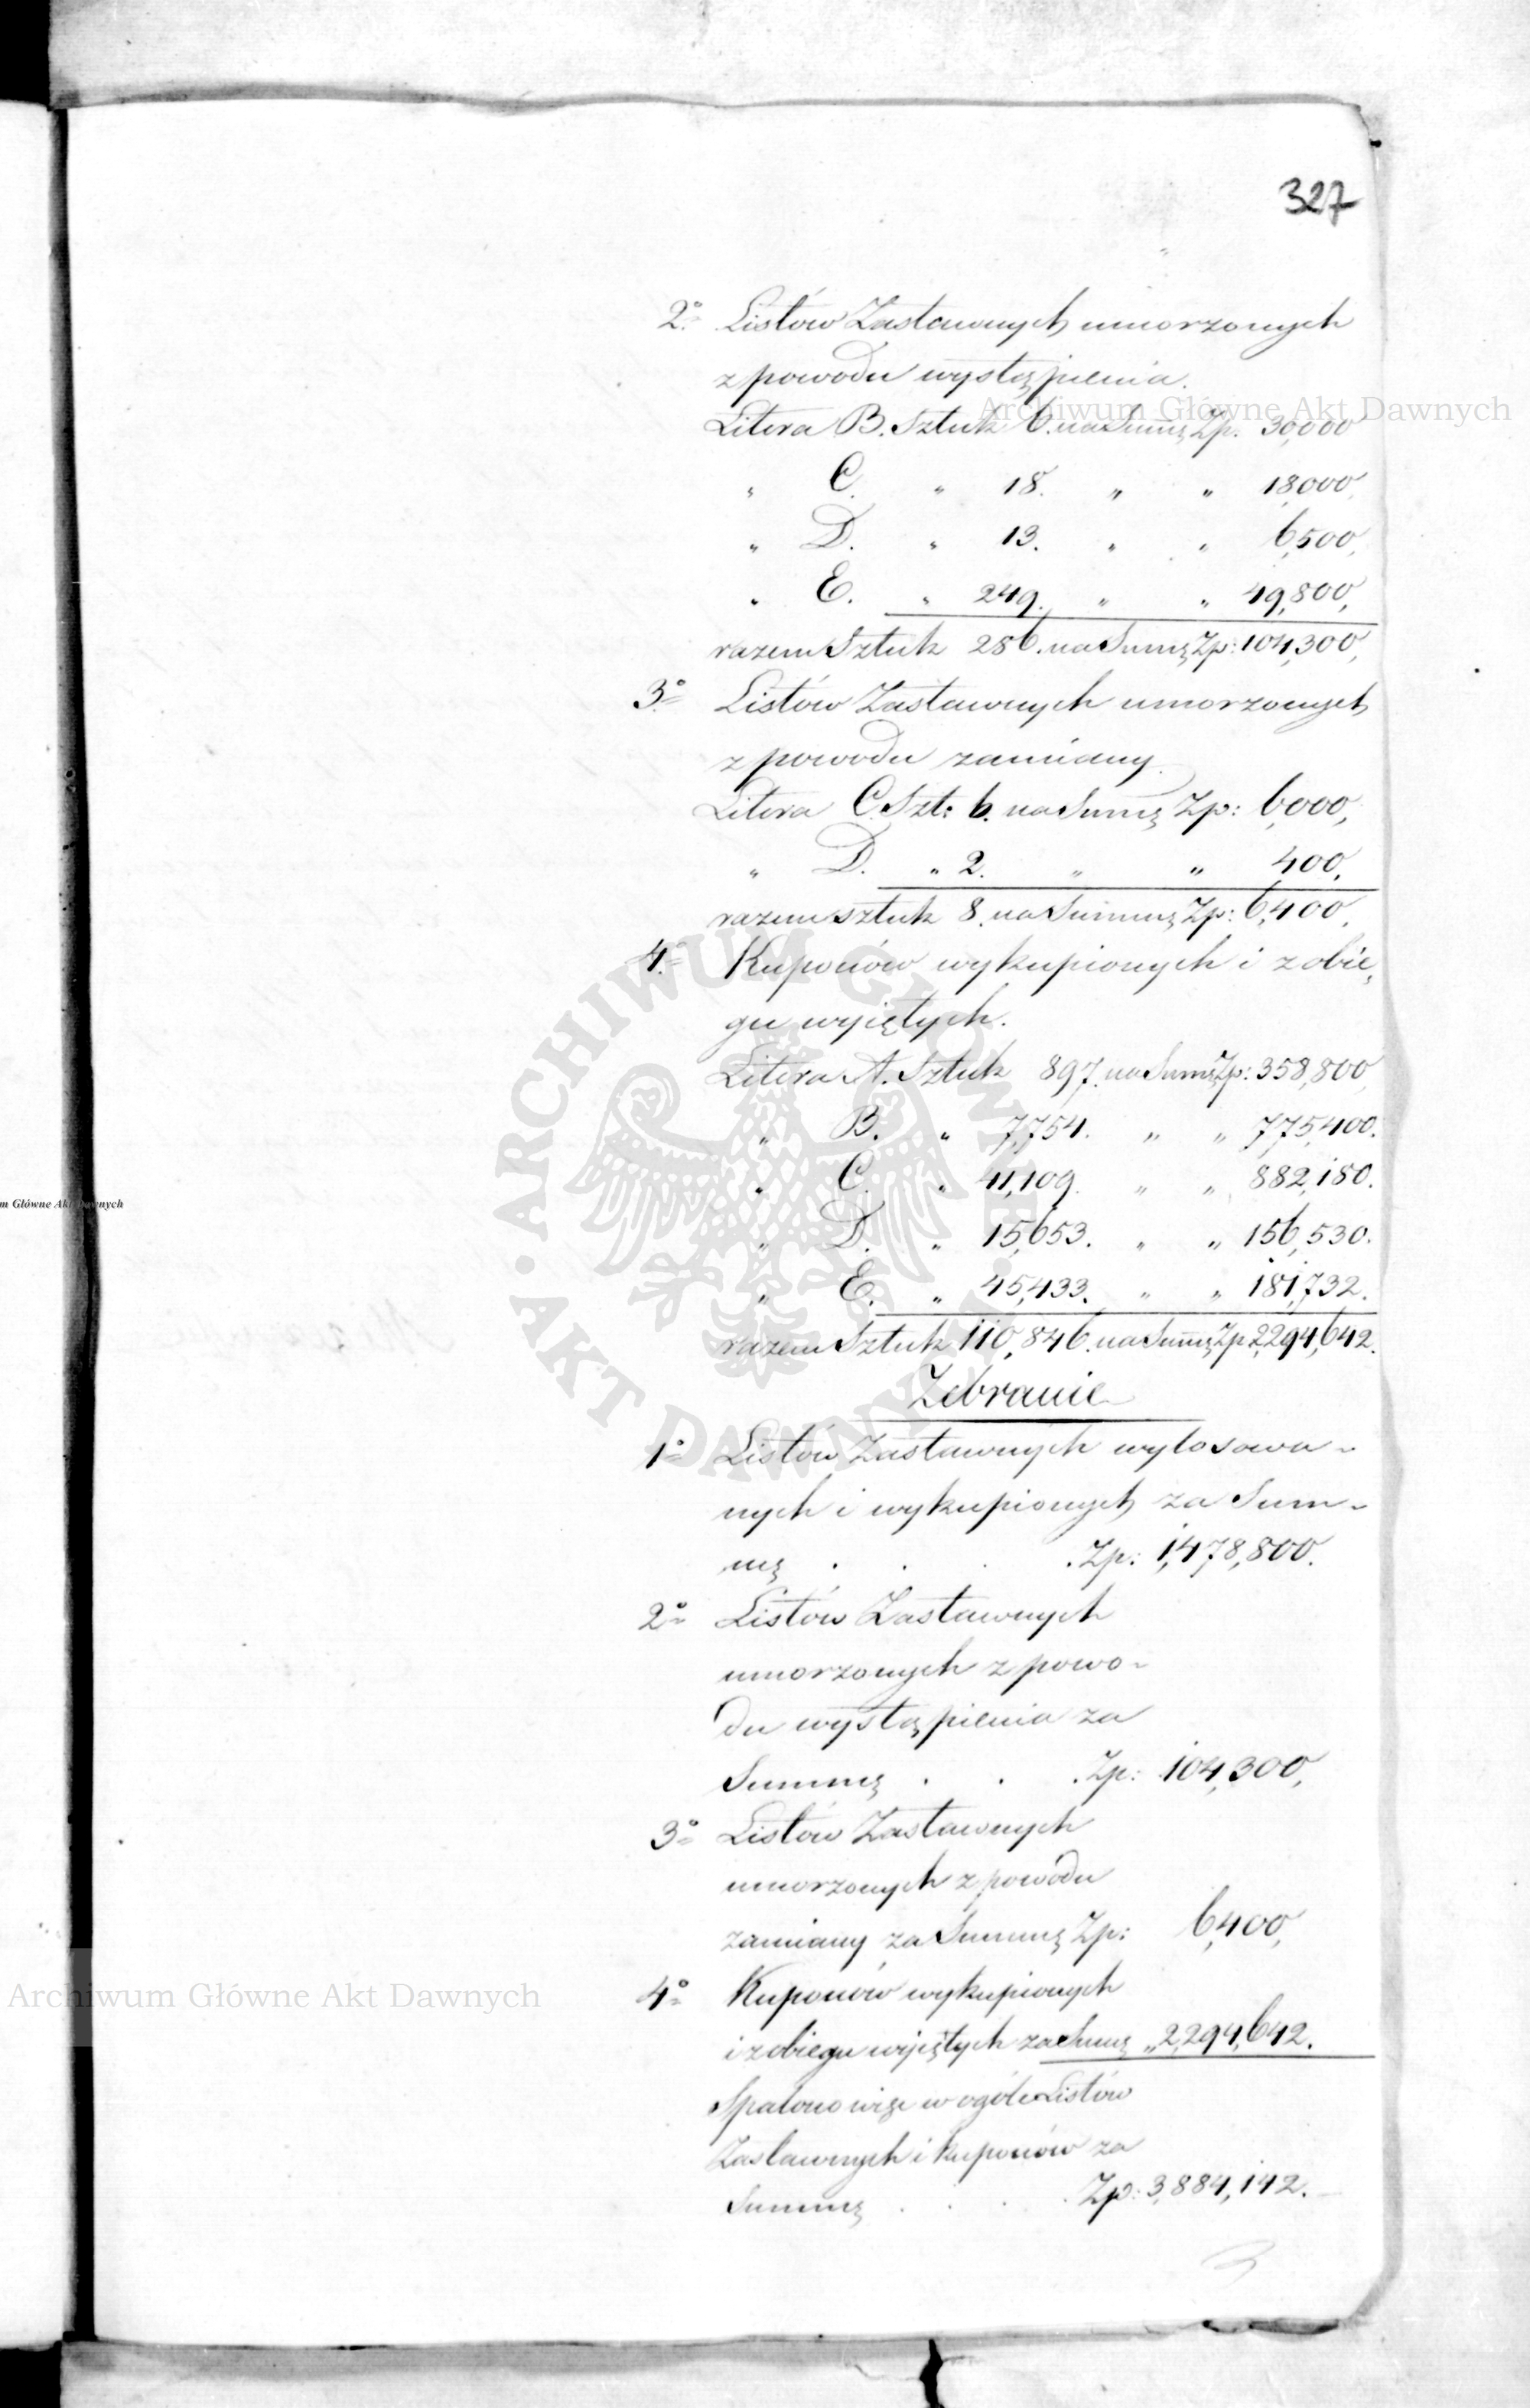 327
2° Listów Zastawnych umorzonych
z powodu wystąpienia.
Litera B. Sztuk 6. na Summę Zp. 30,000
" C. " 18. " " 18,000
" D. " 13. " " 6,500,
" E. " 249. " " 49,800,
razem Sztuk 286. na Summę Zp: 104,300,
3° Listów Zastawnych umorzonych
z powodu zamiany.
Litera C. Szt: 6. na Summę Zp: 6,000,
" D. " 2. " " 400,
razem sztuk 8. na Summę Zp: 6,400,
4° Kuponów wykupionych i z obie„
gu wyiętych.
Litera A. Sztuk 897. na Summę Zp: 358,800,
" B. " 7,754. " " 775,400.
" C. " 41,109. " " 882,180.
" D. " 15,653. " " 156,530.
" E. " 45,433. " " 181,732.
razem Sztuk 110,846. na Summę Zp 2,294,642.
Zebranie
1° Listów Zastawnych wylosowa-
nych i wykupionych za Sum-
mę . . . . Zp: 1,478,800.
2° Listów Zastawnych
umorzonych z powo-
du wystąpienia za
Summę . . . Zp: 104,300,
3° Listów Zastawnych
umorzonych z powodu
zamiany za Summę Zp: 6,400,
4° Kuponów wykupionych
i z obiegu wyiętych za Summę „ 2,294,642.
Spalono więc w ogóle Listów
Zastawnych i kuponów za
Summę . . . . Zp: 3,884,142.
Archiwum Główne Akt Dawnych
Archiwum Główne Akt Dawnych
m Główne Akt Dawnych
ARCHIWUM GŁÓWNE AKT DAWNYCH